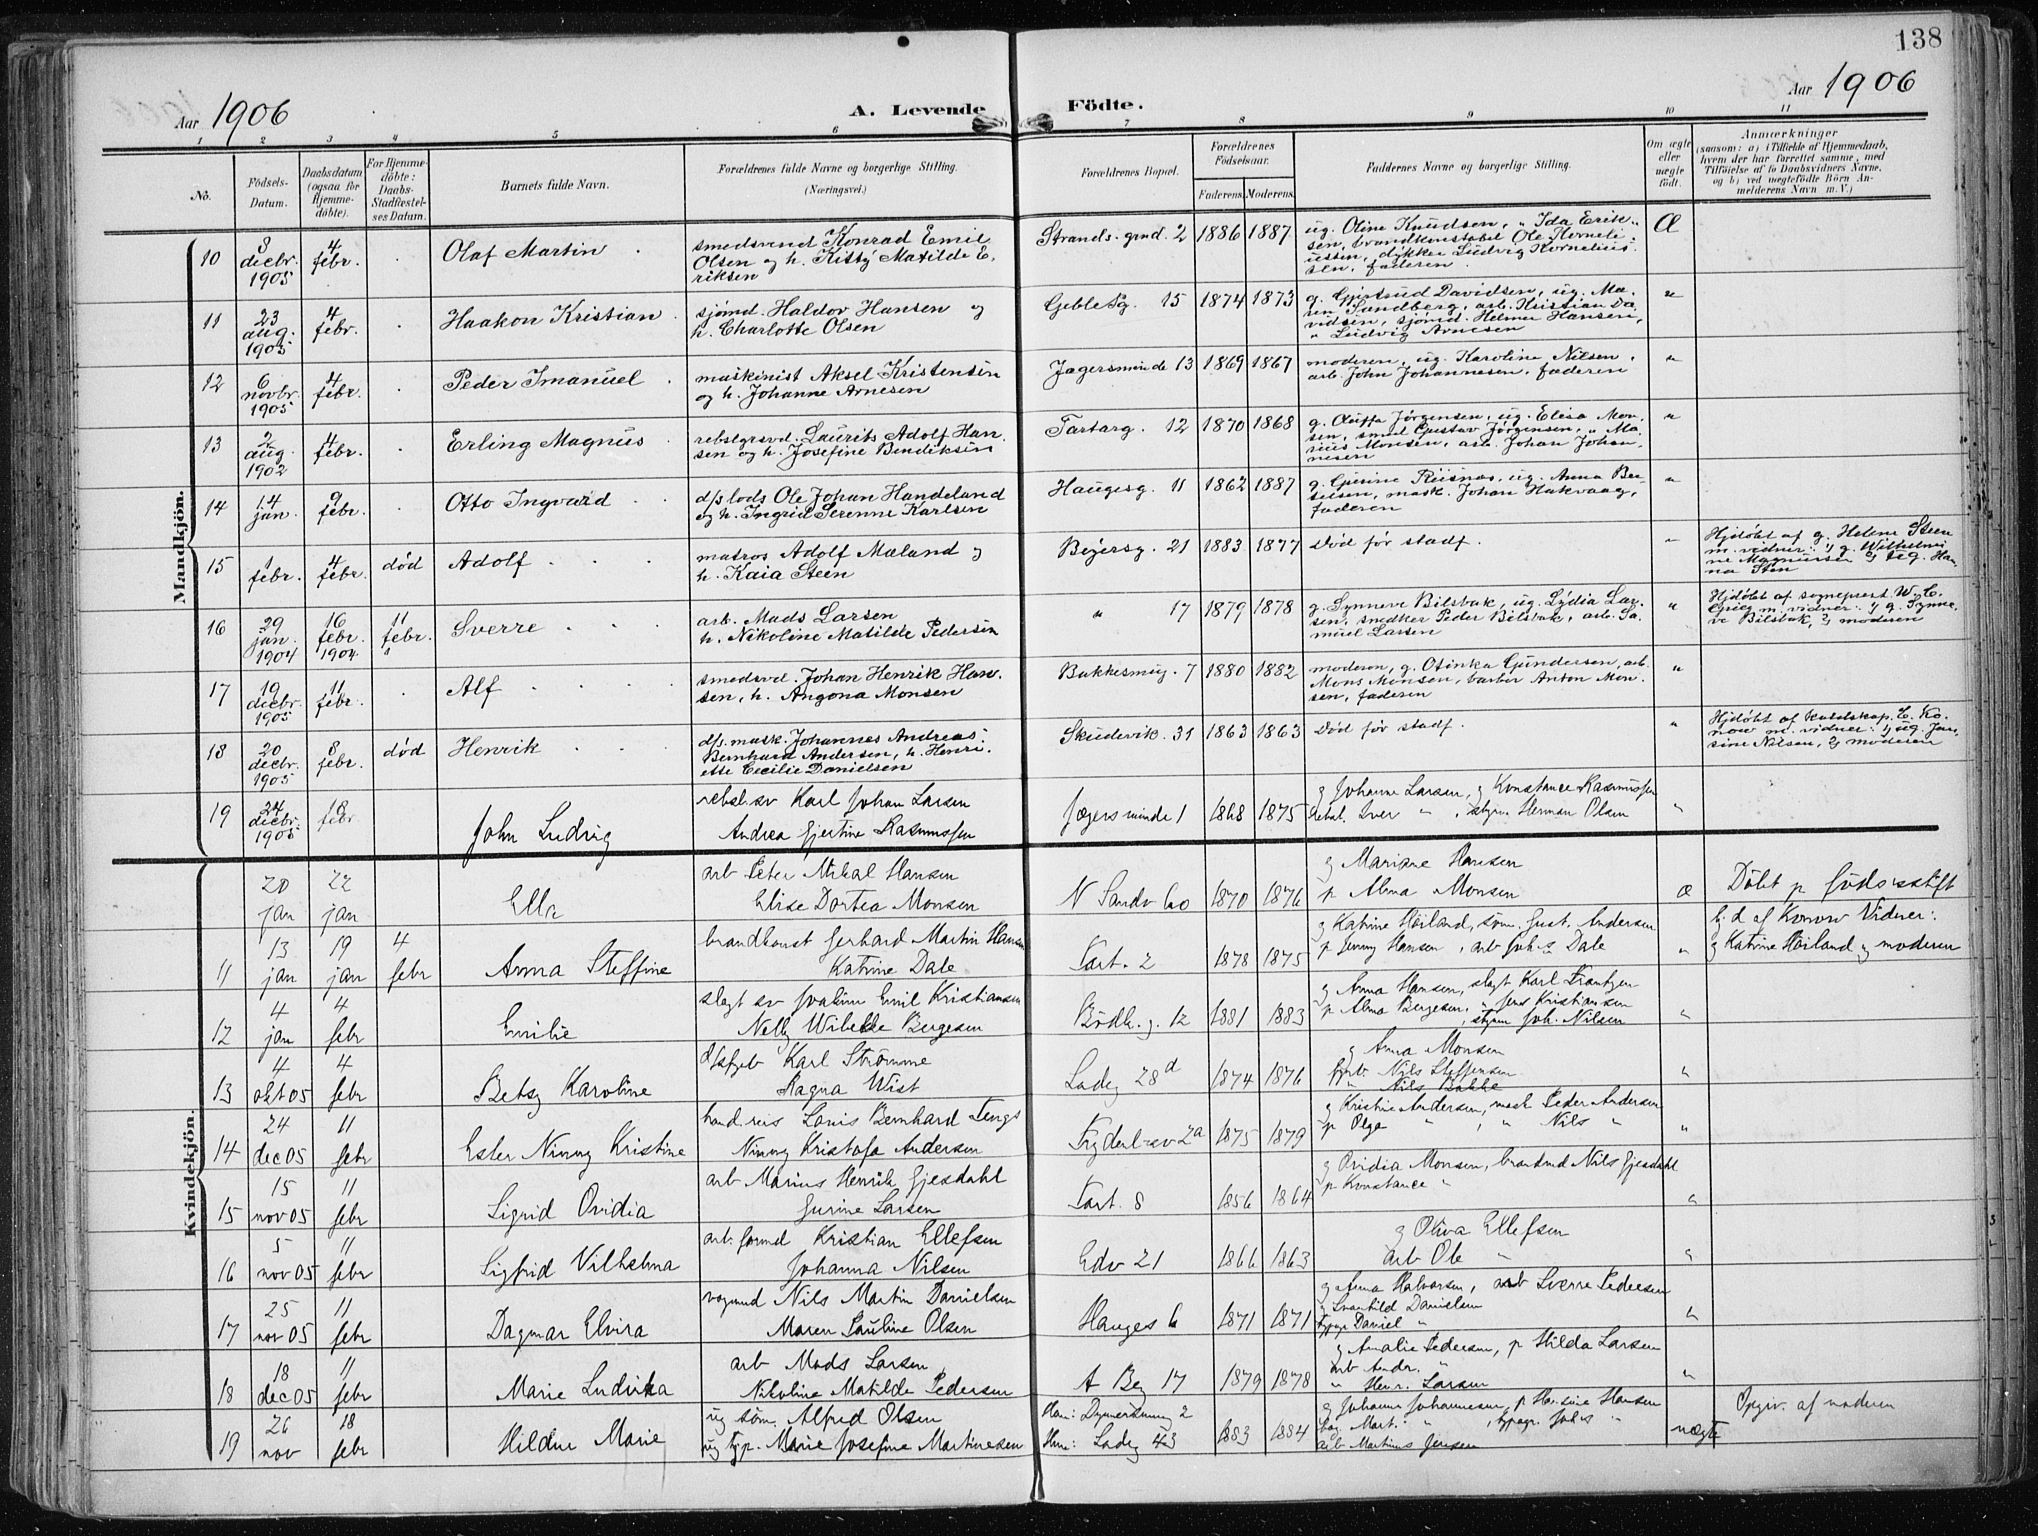 138
Aar 1906
A. Levende Födte.
Aar 1906
1 2 3 4 5 6 7 8 9 10 11
No.
Födsels-Datum.
Daabsdatum (ogsaa for Hjemme-döbte).
For Hjemme-döbte: Daabs-Stadfæstel-ses Datum.
Barnets fulde Navn.
Forældrenes fulde Navne og borgerlige Stilling. (Næringsvei.)
Forældrenes Bopæl.
Forældrenes Födselsaar.
Faderens. Moderens.
Faddernes Navne og borgerlige Stilling.
Om ægte eller uægte födt.
Anmærkninger
(saasom: a) i Tilfælde af Hjemmedaab, hvem der har forrettet samme, med Tilföielse af to Daabsvidners Navne, og b) ved uægtefödte Börn An-melderens Navn m. V.)
Mandkjön.
10 3 decbr. 1905 4 febr. Olaf Martin smedsvend Konrad Emil Olsen og h. Kitty Matilde E. riksen Strands. gmd. 2 1886 1887 ug. Oline Knudsen, " Ida Erik- sen, brandkonstabel Ole Korneli- ussen, dykker Ludvig Kornelius- sen, faderen Æ
11 23 aug. 1905 4 febr. Haakon Kristian sjømd. Haldor Hansen og h. Charlotte Olsen Geble Pg. 15 1874 1873 g. Gjertrud Davidsen, ug. Ma- ren Sandberg, arb. Kristian Da- vidsen, sjømd. Helmer Hansen, " Ludvig Arnesen "
12 6 novbr. 1905 4 febr. Peder Imanuel maskinist Aksel Kristensen og h. Johanne Arnesen Jægersminde 13 1869 1867 moderen, ug. Karoline Nilsen, arb. John Johannesen, faderen "
13 2 aug. 1902 4 febr. Erling Magnus rebslgrsvd. Laurits Adolf Han- sen og h. Josefine Bendiksen Tartarg. 12 1870 1868 g. Jørgensen, ug. Elisa Mon- sen, smed Gustav Jørgensen, " Ma- rius Monsen, arb. Johan Johan- nesen "
14 14 jan. 9 febr. Otto Ingvard d/s lods Ole Johan Handeland og h. Ingrid Serenne Karlsen Haugesg. 11 1862 1887 g. Gurine Risnæs, ug. Anna Ber- sen, mask. Johan Hakvaag, faderen "
15 1 febr. 4 febr. død Adolf matros Adolf Mæland og h. Kaia Steen Beyersg. 21 1883 1877 Død før stadf. " Hjdøbt af g. Helene Steen m. vidner: 1) g. Wilhelmi- ne Magnussen 2) ug. Han- na Sten
16 29 jan. 1904 16 febr. 1904 11 febr. Sverre arb. Mads Larsen h. Nikoline Matilde Pedersen " 17 1879 1878 g. Synneve Bilsbak, ug. Lydia Lar- sen, snedker Peder Bilsbak, arb. Sa- muel Larsen " Hjdøbt af sogneprest W. C. Grieg m. vidner: 1) g. Synne- ve Bilsbak, 2) moderen
17 19 decbr. 1905 11 febr. Alf smedsvd. Johan Henrik Han- sen, h. Angona Monsen Bukkesmug. 7 1880 1882 moderen, g. Otinka Gundersen, arb. Mons Monsen, barber Anton Mon- sen, faderen "
18 20 decbr. 1905 8 febr. død Henrik d/s. mask. Johannes Andreas Bernhard Andersen, h. Henri- ette Cecilie Danielsen Skudevik. 31 1863 1863 Død før stadf. " Hjdøbt af residskap. C. Ko- now m. vidner: 1) ug. Jen- sine Nilsen, 2) moderen
19 24 decbr. 1905 18 febr John Ludvig rebsl. sv Karl Johan Larsen Andrea Gjertine Rasmussen Jægersminde 1 1868 1875 g Johanne Larsen, g Konstance Rasmussen rebsl. Iver " , styrm Herman Olsen "
Kvindekjön.
20 jan 22 jan Ella arb Peter Mikal Hansen Elise Dortea Monsen N Sandv 60 1870 1876 g Mariane Hansen p Alma Monsen æ Döbt p födselsstift
11 13 jan 19 jan 4 febr Anna Steffine brandkonst Gerhard Martin Hansen Katrine Dale Tart. 2 1878 1875 g Katrine Høiland, søm. Gust. Andersen p Jenny Hansen, arb Johs Dale " h. d af Konow Vidner: g Katrine Høiland g moderen
12 4 jan 4 febr Emilie slagt sv Joakim Emil Kristiansen Nelly Wibekke Bergesen Bödk. g. 12 1881 1883 g Anna Hansen, slagt Karl Frantzen p Alma Bergesen, " Jens Kristiansen , styrm Joh. Nilsen "
13 4 okt 05 4 febr Betsy Karoline d/sfyrb Karl Strømme Ragna Wist Ladeg 28 d 1874 1876 g Anna Monsen fyrb. Nils Steffensen " Nils Bakke "
14 24 dec 05 11 febr Ester Ninny Kristine hand. reis Louis Bernhard Tengs Ninny Kristofa Andersen Frydenl. sv 2a 1875 1879 g Kristine Andersen, mask Peder Andersen p Olga " , " Nils " "
15 15 nov 05 11 febr Sigrid Ovidia arb Marius Henrik Gjesdahl Gurine Larsen Tart. 8 1856 1864 g Ovidia Monsen, brandmd Nils Gjesdahl p Konstance " "
16 5 nov 05 11 febr Sigfrid Vilhelma arb. formd Kristian Ellefsen Johanna Nilsen Edv 21 1866 1863 g Oliva Ellefsen arb Ole " "
17 25 nov 05 11 febr Dagmar Elvira vognmd Nils Martin Danielsen Maren Pauline Olsen Hauges 6 1871 1871 g Anna Halvorsen, arb Sverre Pedersen g Svanhild Danielsen typogr. Daniel " "
18 18 dec 05 11 febr Marie Ludvika arb Mads Larsen Nikoline Matilde Pedersen A Bey 17 1879 1878 g Amalie Pedersen, p Hilda Larsen arb Andr. " " Henr. Larsen "
19 26 nov 18 febr Hildur Marie ug söm. Alfred Olsen ug typ. Marie Josefine Martinesen Ham: Dymersmug 2 Hun: Ladeg 43 1883 1884 g Johanna Johannesen, p Hansine Hansen bag. Mart. " , typogr. Johs " arb Martinus Jensen uægte Opgiv. af moderen